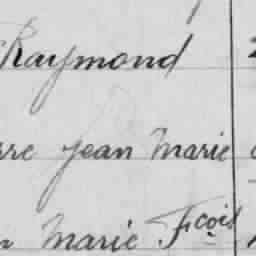 Raymond
rre Jean Marie
n Marie Fçois